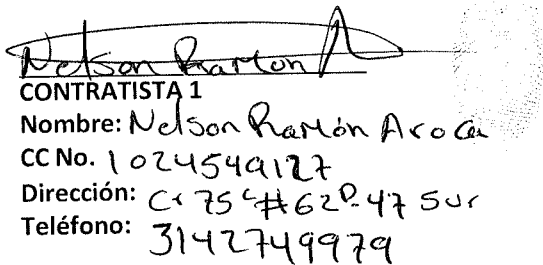 Nelson Ramón A
CONTRATISTA 1
Nombre: Nelson Ramón Aroca
CC No. 1024549127
Dirección: Cr 75 C # 62 D-47 Sur
Teléfono: 3142749979